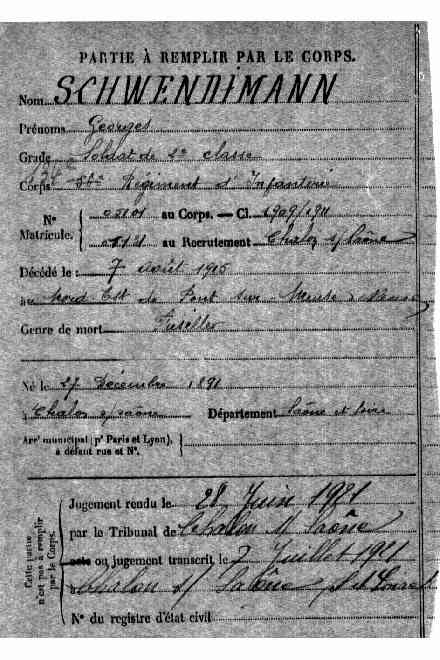 PARTIE À REMPLIR PAR LE CORPS.
Nom SCHWENDIMANN
Prénoms Georges
Grade Soldat de 2e classe
Corps 56e Régiment d'Infanterie
N° Matricule. au Corps. — Cl. 1909/1911
au Recrutement Chalon s/Saône
Décédé le 7 août 1915
au Nord Est de Pont sur Meuse
Genre de mort Fusillé
Né le 27 Décembre 1891
à Chalon s/Saône Département Saône et Loire
Arr^t municipal (p^r Paris et Lyon), à défaut rue et N°.
Cette partie n'est pas à remplir par le Corps.
Jugement rendu le 28 Juin 1921
par le Tribunal de Chalon s/Saône
acte ou jugement transcrit le 7 Juillet 1921
à Chalon s/ Saône
N° du registre d'état civil